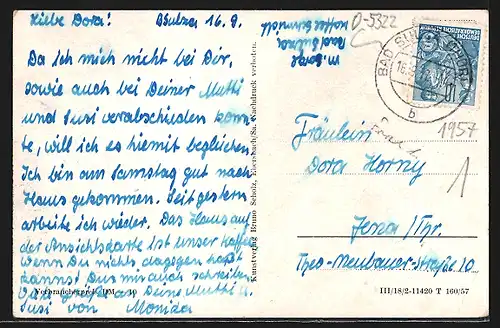 Liebe Dora! BSulza 16. 9.
Da ich mich nicht bei Dir,
sowie auch bei Deiner Mutti
und Susi verabschieden konn-
te, will ich es hiemit
Ich bin am Samstag gut nach
Haus gekommen. Seit gestern
arbeite ich wieder. Das Haus auf
der Ansichtskarte ist unser Kaffee
Wenn Du nichts dagegen hast
kannst Du mir auch schreiben
Deine Mutti u.
Susi von Monika
M. Sorge
Bad Sulza
O-5322
BAD SULZA
16.9.
b
DEUTSCHE DEMOKRATISCHE REPUBLIK
1957
1
Fräulein
Dora Horny
Jena/Thr.
Theo-Neubauer-Straße 10
Kunstverlag Bruno Scholz, Ebersbach/Sa. Nachdruck verboten.
III/18/2-11420 T 160/57